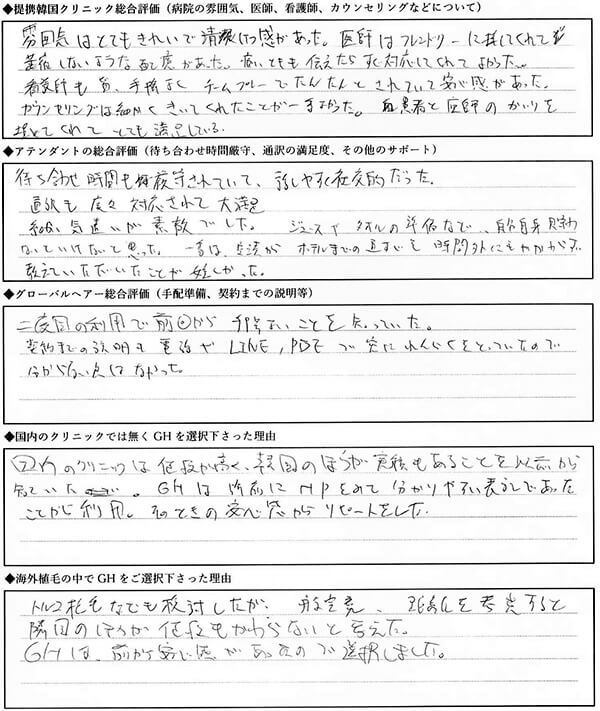 ◆提携韓国クリニック総合評価（病院の雰囲気、医師、看護師、カウンセリングなどについて）
雰囲気はとてもきれいで清潔感があった。医師はフレンドリーに接してくれて
緊張しないような配慮があった。痛いとも伝えたらすぐ対応してくれてよかった。
看護師も皆、手際よくチームプレーでたんたんとされていて安心感があった。
カウンセリングは細かくきいてくれたことが一番よかった。患者と医師の
くれてとても満足している。
◆アテンダントの総合評価（待ち合わせ時間厳守、通訳の満足度、その他のサポート）
待ち合わせ時間も厳守されていて、話しやすく社交的だった。
通訳も度々対応されて大満足
細かい気遣いが素敵でした。ジュースやタオルの準備など、自分自身見習わ
ないといけないと思った。一番は、ホテルまでの道すじも時間外にもかかわらず
教えていただいたことが嬉しかった。
◆グローバルヘアー総合評価（手配準備、契約までの説明等）
二度目の利用で前回から手際よいことを知っていた。
契約までの説明も電話やLINE、PDFで密にれんらくをとっていたので
分からない点はなかった。
◆国内のクリニックでは無くGHを選択下さった理由
国内のクリニックは値段が高く、韓国のほうが実績もあることを以前から
知っていた。GHは以前にHPをみて分かりやすい表示であった
ことから利用。そのときの安心感からリピートをした。
◆海外植毛の中でGHをご選択下さった理由
トルコ植毛なども検討したが、を考慮すると
隣国のほうが値段もかわらないと考えた。
GHは、前から安心感があったので選択しました。